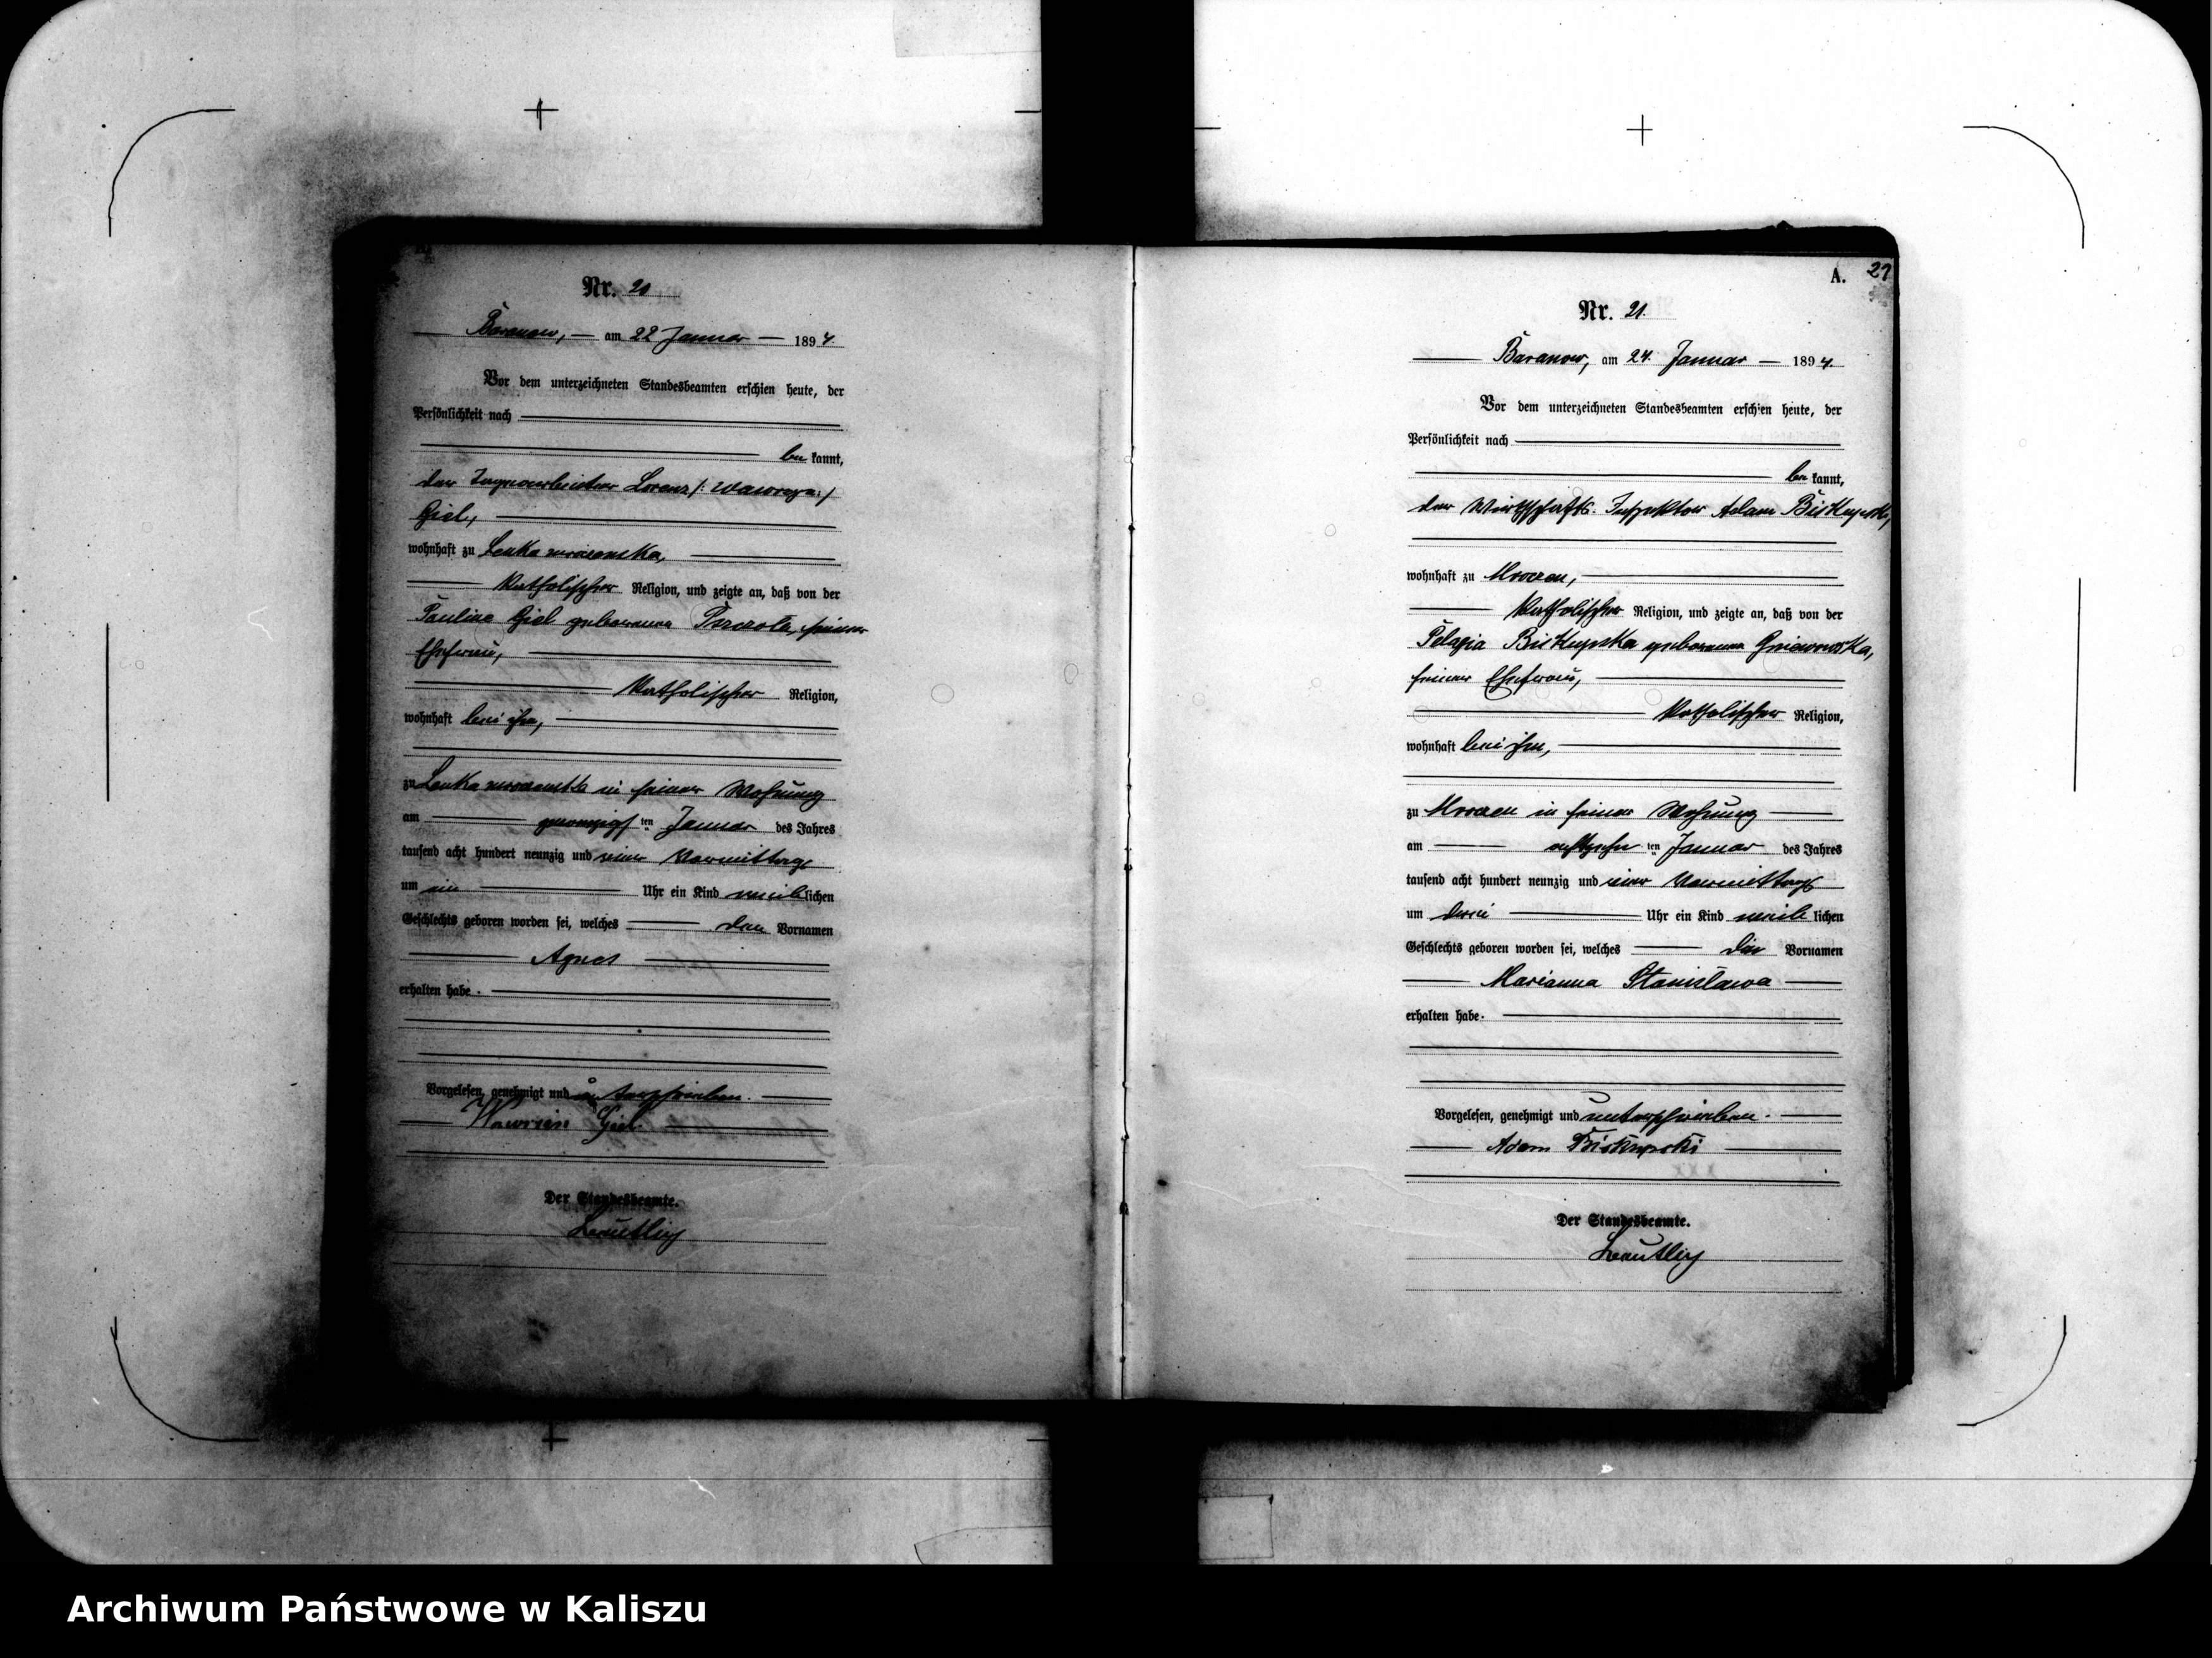 Nr. 20
Baranow, am 22 Januar 1894.
Vor dem unterzeichneten Standesbeamten erschien heute, der
Persönlichkeit nach
be kannt,
der Lorenz /: Wawrzyn :/
Giel,
wohnhaft zu Lenka mroczenska,
katholischer Religion, und zeigte an, daß von der
Pauline Giel geborenen seiner
Ehefrau,
katholischer Religion,
wohnhaft bei ihm,
zu Lenka mroczenska in seiner Wohnung
am zwanzigsten Januar des Jahres
tausend acht hundert neunzig und vier Vormittags
um ein Uhr ein Kind weiblichen
Geschlechts geboren worden sei, welches den Vornamen
Agnes
erhalten habe.
Vorgelesen, genehmigt und unterschrieben.
Giel
Der Standesbeamte.
A. 21
Nr. 21.
Baranow, am 24. Januar 1894.
Vor dem unterzeichneten Standesbeamten erschien heute, der
Persönlichkeit nach
be kannt,
der Wirthschafts-Inspektor Adam Biskupski,
wohnhaft zu Mroczen,
katholischer Religion, und zeigte an, daß von der
Pelagia Biskupska geborenen
seiner Ehefrau,
katholischer Religion,
wohnhaft bei ihm,
zu Mroczen in seiner Wohnung
am achtzehnten Januar des Jahres
tausend acht hundert neunzig und vier Vormittags
um drei Uhr ein Kind weiblichen
Geschlechts geboren worden sei, welches die Vornamen
Marianna Stanislawa
erhalten habe.
Vorgelesen, genehmigt und unterschrieben.
Adam Biskupski
Der Standesbeamte.
Archiwum Państwowe w Kaliszu